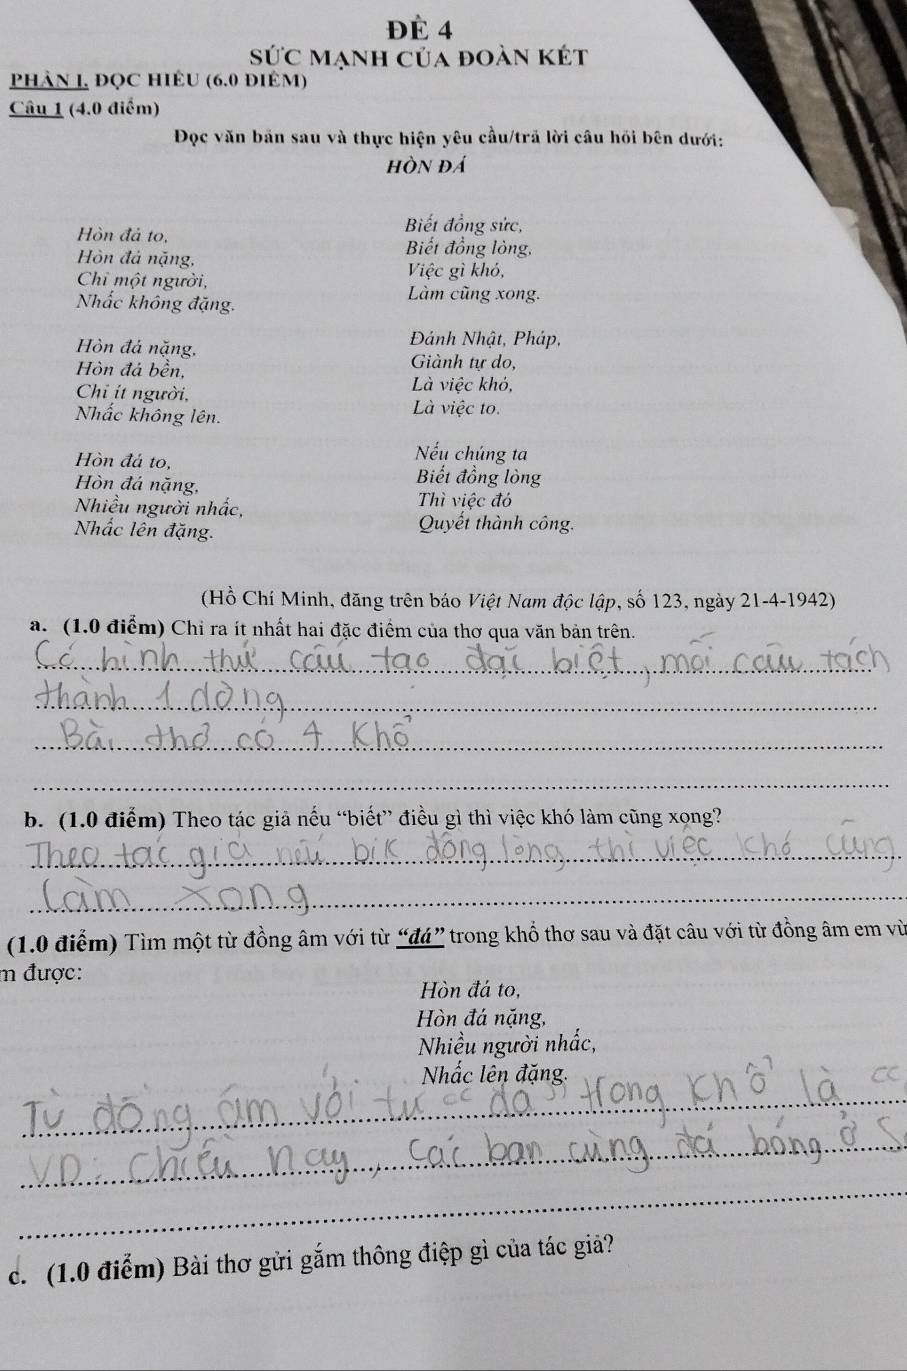 ĐỀ 4
SỨC MẠNH CỦA ĐOÀN KẾT
PHẦN I. ĐỌC HIỂU (6.0 ĐIỂM)
Câu 1 (4.0 điểm)
Đọc văn bản sau và thực hiện yêu cầu/trả lời câu hỏi bên dưới:
HÒN ĐÁ
Hòn đá to,
Hòn đá nặng,
Chỉ một người,
Nhấc không đặng.
Hòn đá nặng,
Hòn đá bền,
Chỉ ít người,
Nhấc không lên.
Hòn đá to,
Hòn đá nặng,
Nhiều người nhấc,
Nhấc lên đặng.
Biết đồng sức,
Biết đồng lòng,
Việc gì khó,
Làm cũng xong.
Đánh Nhật, Pháp,
Giành tự do,
Là việc khó,
Là việc to.
Nếu chúng ta
Biết đồng lòng
Thì việc đó
Quyết thành công.
(Hồ Chí Minh, đăng trên báo Việt Nam độc lập, số 123, ngày 21-4-1942)
a. (1.0 điểm) Chỉ ra ít nhất hai đặc điểm của thơ qua văn bản trên.
Có hình thức cấu tạo đặc biệt, mỗi câu tách
thành 1 dòng
Bài thơ có 4 khổ
b. (1.0 điểm) Theo tác giả nếu “biết” điều gì thì việc khó làm cũng xong?
Theo tác giả nếu bik đồng lòng thì việc khó cũng
làm xong
(1.0 điểm) Tìm một từ đồng âm với từ “đá” trong khổ thơ sau và đặt câu với từ đồng âm em vừ
m được:
Hòn đá to,
Hòn đá nặng,
Nhiều người nhấc,
Nhấc lên đặng.
Từ đồng âm với từ “đá” trong khổ là “
VD: Chiều nay, các bạn cùng đá bóng ở S
c. (1.0 điểm) Bài thơ gửi gắm thông điệp gì của tác giả?